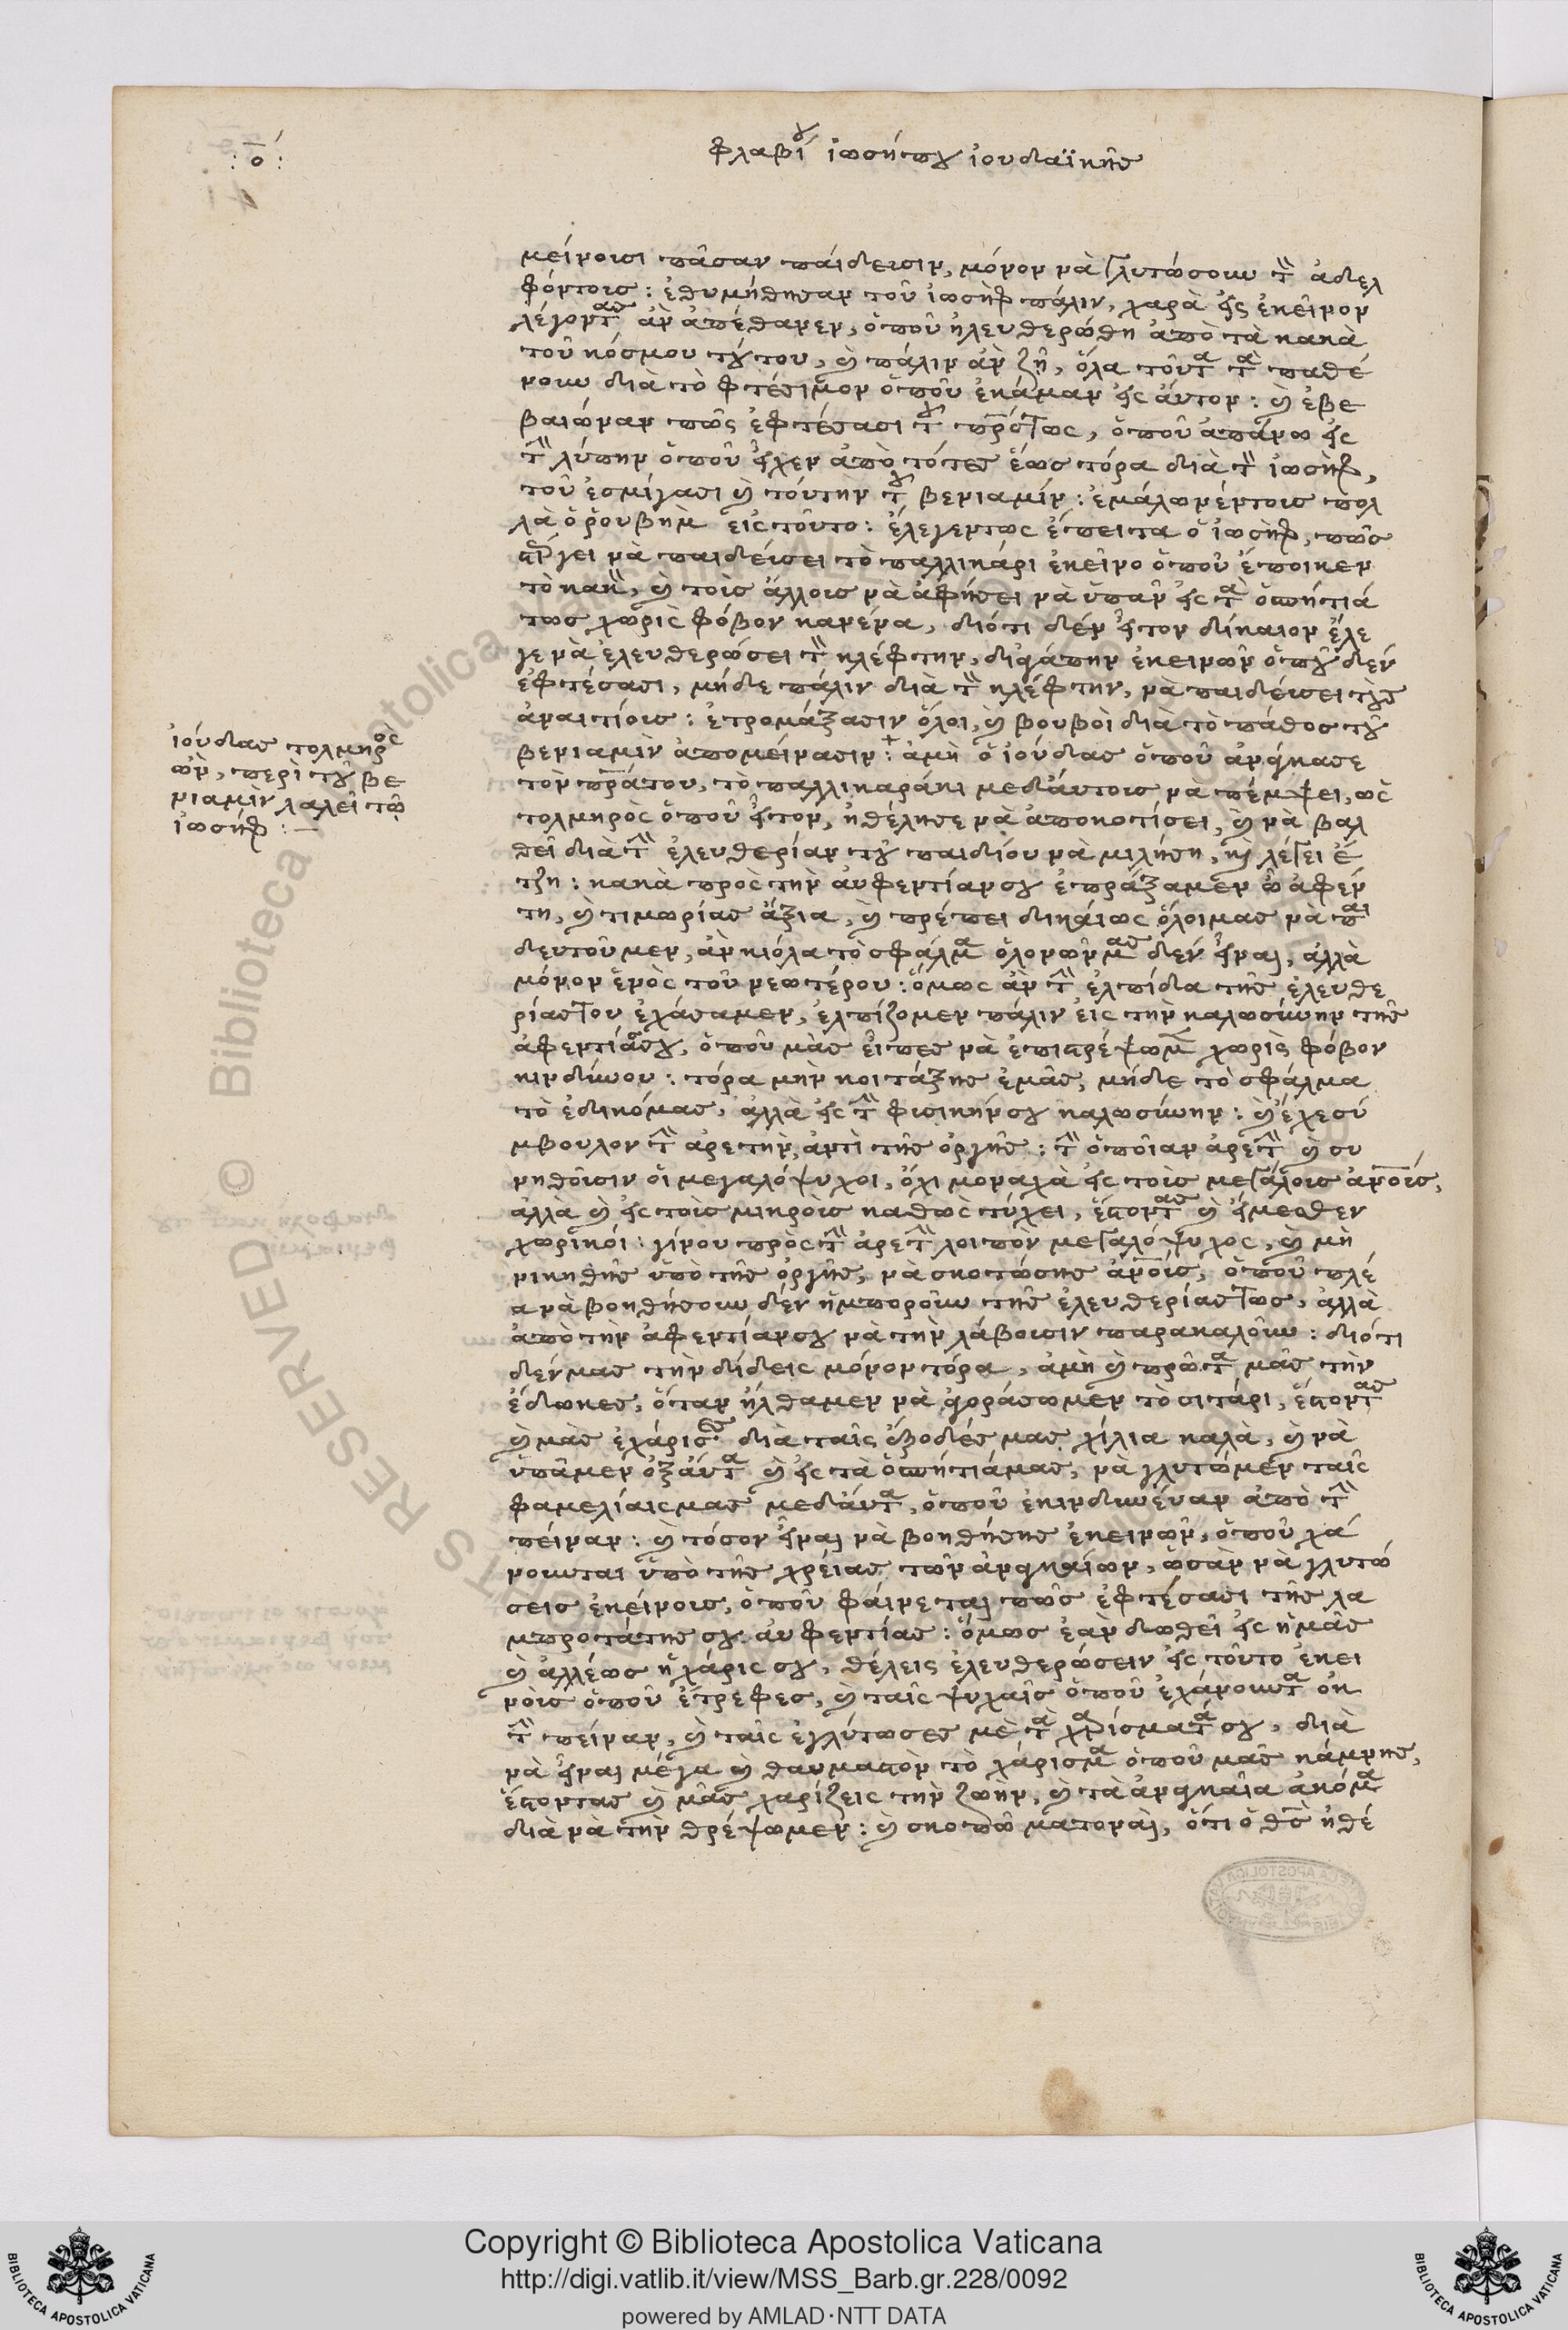 : ο :
φλαβίου ἰωσήπου ἰουδαϊκῆς
μείνουσι πᾶσαν παίδευσιν, μόνον νὰ γλυτώσουν τὸν ἀδελ
φόντους: ἐθυμήθησαν τοῦ ἰωσὴφ πάλιν, χαρὰ εἰς ἐκεῖνον
λέγοντας ἂν ἀπέθανεν, ὁποῦ ἠλευθερώθη ἀπὸ τὰ κακὰ
τοῦ κόσμου τούτου, καὶ πάλιν ἂν ζῇ, ὅλα τοῦτα τὰ παθέ
νουν διὰ τὸ φτέσιμον ὁποῦ ἐκάμαν εἰς ἀυτον: καὶ ἐβε
βαιώναν πῶς ἐφτέσασι τοῦ πρός τως, ὁποῦ ἀπάνω εἰς
τὴν λύπην ὁποῦ εἶχεν ἀπὸ τότες ἕως τόρα διὰ τὸν ἰωσὴφ,
τοῦ ἐσμίγασι καὶ τούτην τοῦ βενιαμίν: ἐμάλωνέντους πολ
λὰ ὁ ῥουβὴμ εἰς τοῦτο: ἐλεγεντως ἔπειτα ὁ ἰωσὴφ, πῶς
στέργει νὰ παιδεύσει τὸ παλλικάρι ἐκεῖνο ὁποῦ ἔποικεν
τὸ κακὸν, καὶ τοὺς ἄλλους νὰ ἀφήσει νὰ ὑπᾶν εἰς τὰ ὀσπήτιά
τως χωρὶς φόβον κανένα, διότι δὲν ἦτον δίκαιον ἔλε
γε νὰ ἐλευθερώσει τὸν κλέφτην, δι ἀγάπην ἐκεινῶν ὁποῦ δὲν
ἐφτέσασι, μήδε πάλιν διὰ τὸν κλέφτην, νὰ παιδεύσει τοὺς
ἀναιτίους: ἐτρομάξασιν ὅλοι, καὶ βουβοὶ διὰ τὸ πάθος τοῦ
βενιαμὶν ἀπομείνασιν: ἀμὴ ὁ ἰούδας ὁποῦ ἀνάγκασε
τὸν πράτου, τὸ παλλικαράκι μεδάυτους νὰ πέμψει, ὡς
τολμηρὸς ὁποῦ ἦτον, ἠθέλησε νὰ ἀποκοτίσει, καὶ νὰ βαλ
θεῖ διὰ τὴν ἐλευθερίαν τοῦ παιδίου νὰ μιλήση, καὶ λέγει ἔ
τζη: κακὰ πρὸς τὴν ἀυφεντίανσου ἐπράξαμεν ὦ ἀφέν
τη, καὶ τιμωρίας ἄξια, καὶ πρέπει δικαίως ὅλοιμας νὰ παι
δευτοῦμεν, ἂν κιόλα τὸ σφάλμα ὁλονῶν μας δὲν εἶναι, ἀλλὰ
μόνον ἑνὸς τοῦ νεωτέρου: ὅμως ἂν τὴν ἐλπίδα τῆς ἐλευθε
ρίας του ἐχάσαμεν, ἐλπίζομεν πάλιν εἰς τὴν καλωσύνην τῆς
ἀφεντιᾶσου, ὁποῦ μᾶς εἶπες νὰ ἐπιστρέψωμεν χωρὶς φόβον
κινδύνου: τόρα μὴν κοιτάξης ἐμᾶς, μήδε τὸ σφάλμα
τὸ ἐδικόμας, ἀλλὰ εἰς τὴν φισικήνσου καλωσύνην: καὶ ἔχε σύ
μβουλον τὴν ἀρετὴν, ἀντὶ τῆς ὀργῆς: τὴν ὁποῖαν ἀρετὴν καὶ συ
νηθοῦσιν οἱ μεγαλόψυχοι, ὄχι μοναχὰ εἰς τοὺς μεγάλους ἀνθρώπους,
ἀλλὰ καὶ εἰς τοὺς μικροὺς καθὼς τύχει, ἔστοντας καὶ εἴμεσθεν
χωρικοί: γίνου πρὸς τὴν ἀρετὴν λοιπὸν μεγαλόψυχος, καὶ μὴ
νικηθῆς ὑπὸ τῆς ὀργῆς, νὰ σκοτώσης ἀνθρώπους, ὁποῦ πλέ
α νὰ βοηθήσουν δὲν ἠμποροῦν τῆς ἐλευθερίας τως, ἀλλὰ
ἀπὸ τὴν ἀφεντίανσου νὰ τὴν λάβουσιν παρακαλοῦν: διότι
δένμας τὴν δίδεις μόνον τόρα, ἀμὴ καὶ πρῶτα μᾶς τὴν
ἔδωκες, ὅταν ἤλθαμεν νὰ ἀγοράσωμεν τὸ σιτάρι, ἔστοντας
καὶ μᾶς ἐχάρισες διὰ ταῖς ὀξοδές μας χίλια καλὰ, καὶ νὰ
ὑπᾶμεν ὀξἄυτα καὶ εἰς τὰ ὀσπήτιάμας, νὰ γλυτώμεν ταῖς
φαμελίαιςμας μεδἄυτα, ὁποῦ ἐκινδυνέυαν ἀπὸ τὴν
πείναν: καὶ τόσον εἶναι νὰ βοηθήσης ἐκεινῶν, ὁποῦ χά
νουνται ὑπὸ τῆς χρείας τῶν ἀναγκαίων, ὡσὰν νὰ γλυτώ
σεις ἐκείνους, ὁποῦ φάινεται πῶς ἐφτέσασι τῆς λα
μπροτάτης σου ἀυφεντίας: ὅμως ἐαν δωθεῖ εἰς ἡμᾶς
καὶ ἀλλέως ἡ χάρις σου, θέλεις ἐλευθερώσειν εἰς τοῦτο ἐκει
νοὺς ὁποῦ ἔτρεφες, καὶ ταῖς ψυχαῖς ὁποῦ ἐχάνουντα ὀκ
τὴν πείναν, καὶ ταῖς ἐγλύτωσες μὲ τὰ χαρίσματά σου, διὰ
νὰ εἶναι μέγα καὶ θαυμαστὸν τὸ χάρισμα ὁποῦ μᾶς κάμνης,
ἔστοντας καὶ μᾶς χαρίζεις τὴν ζωὴν, καὶ τὰ ἀναγκαῖα ἀκόμα
διὰ νὰ τὴν θρέψωμεν: καὶ σκοπῶ ὅτι ὁ θεὸς ἠθέ
ἰούδας τολμηρὸς
ὢν, περὶ τοῦ βε
νιαμὶν λαλεῖ τῷ
ἰωσήφ: —
Copyright © Biblioteca Apostolica Vaticana
http://digi.vatlib.it/view/MSS_Barb.gr.228/0092
powered by AMLAD·NTT DATA
BIBLIOTECA APOSTOLICA VATICANA
BIBLIOTECA APOSTOLICA VATICANA